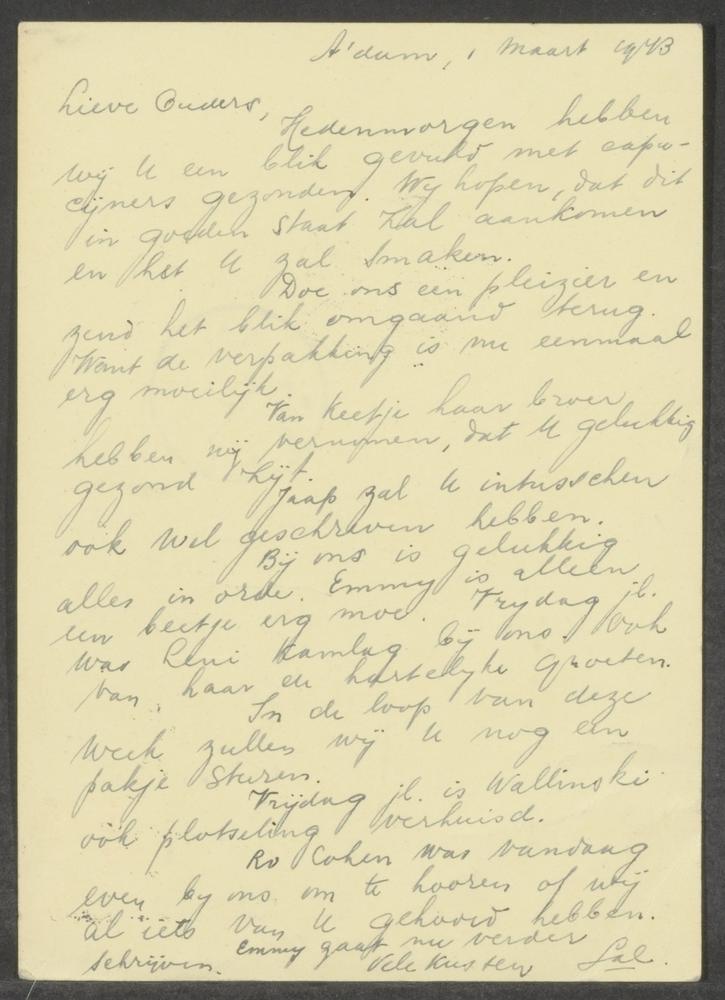 A'dam, 1 Maart 1943
Lieve Ouders,
Hedenmorgen hebben
wij U een blik gevuld met capu-
cijners gezonden. Wij hopen, dat dit
in goeden staat zal aankomen
en het U zal smaken.
Doe ons een pleizier en
zend het blik omgaand terug.
Want de verpakking is nu eenmaal
erg moeilijk.
Van Keetje haar broer
hebben wij vernomen, dat U gelukkig
gezond zijt.
Jaap zal U intusschen
ook wel geschreven hebben.
Bij ons is gelukkig
alles in orde. Emmy is alleen
een beetje erg moe. Vrydag jl.
was Leni Kamlag bij ons. Ook
van haar de hartelyke groeten.
In de loop van deze
week zullen wij U nog een
pakje sturen.
Vrijdag jl. is Wallinski
ook plotseling verhuisd.
Ro Cohen was vandaag
even by ons om te hooren of wij
al iets van U gehoord hebben.
Emmy gaat nu verder
schrijven. Vele kussen Sal.